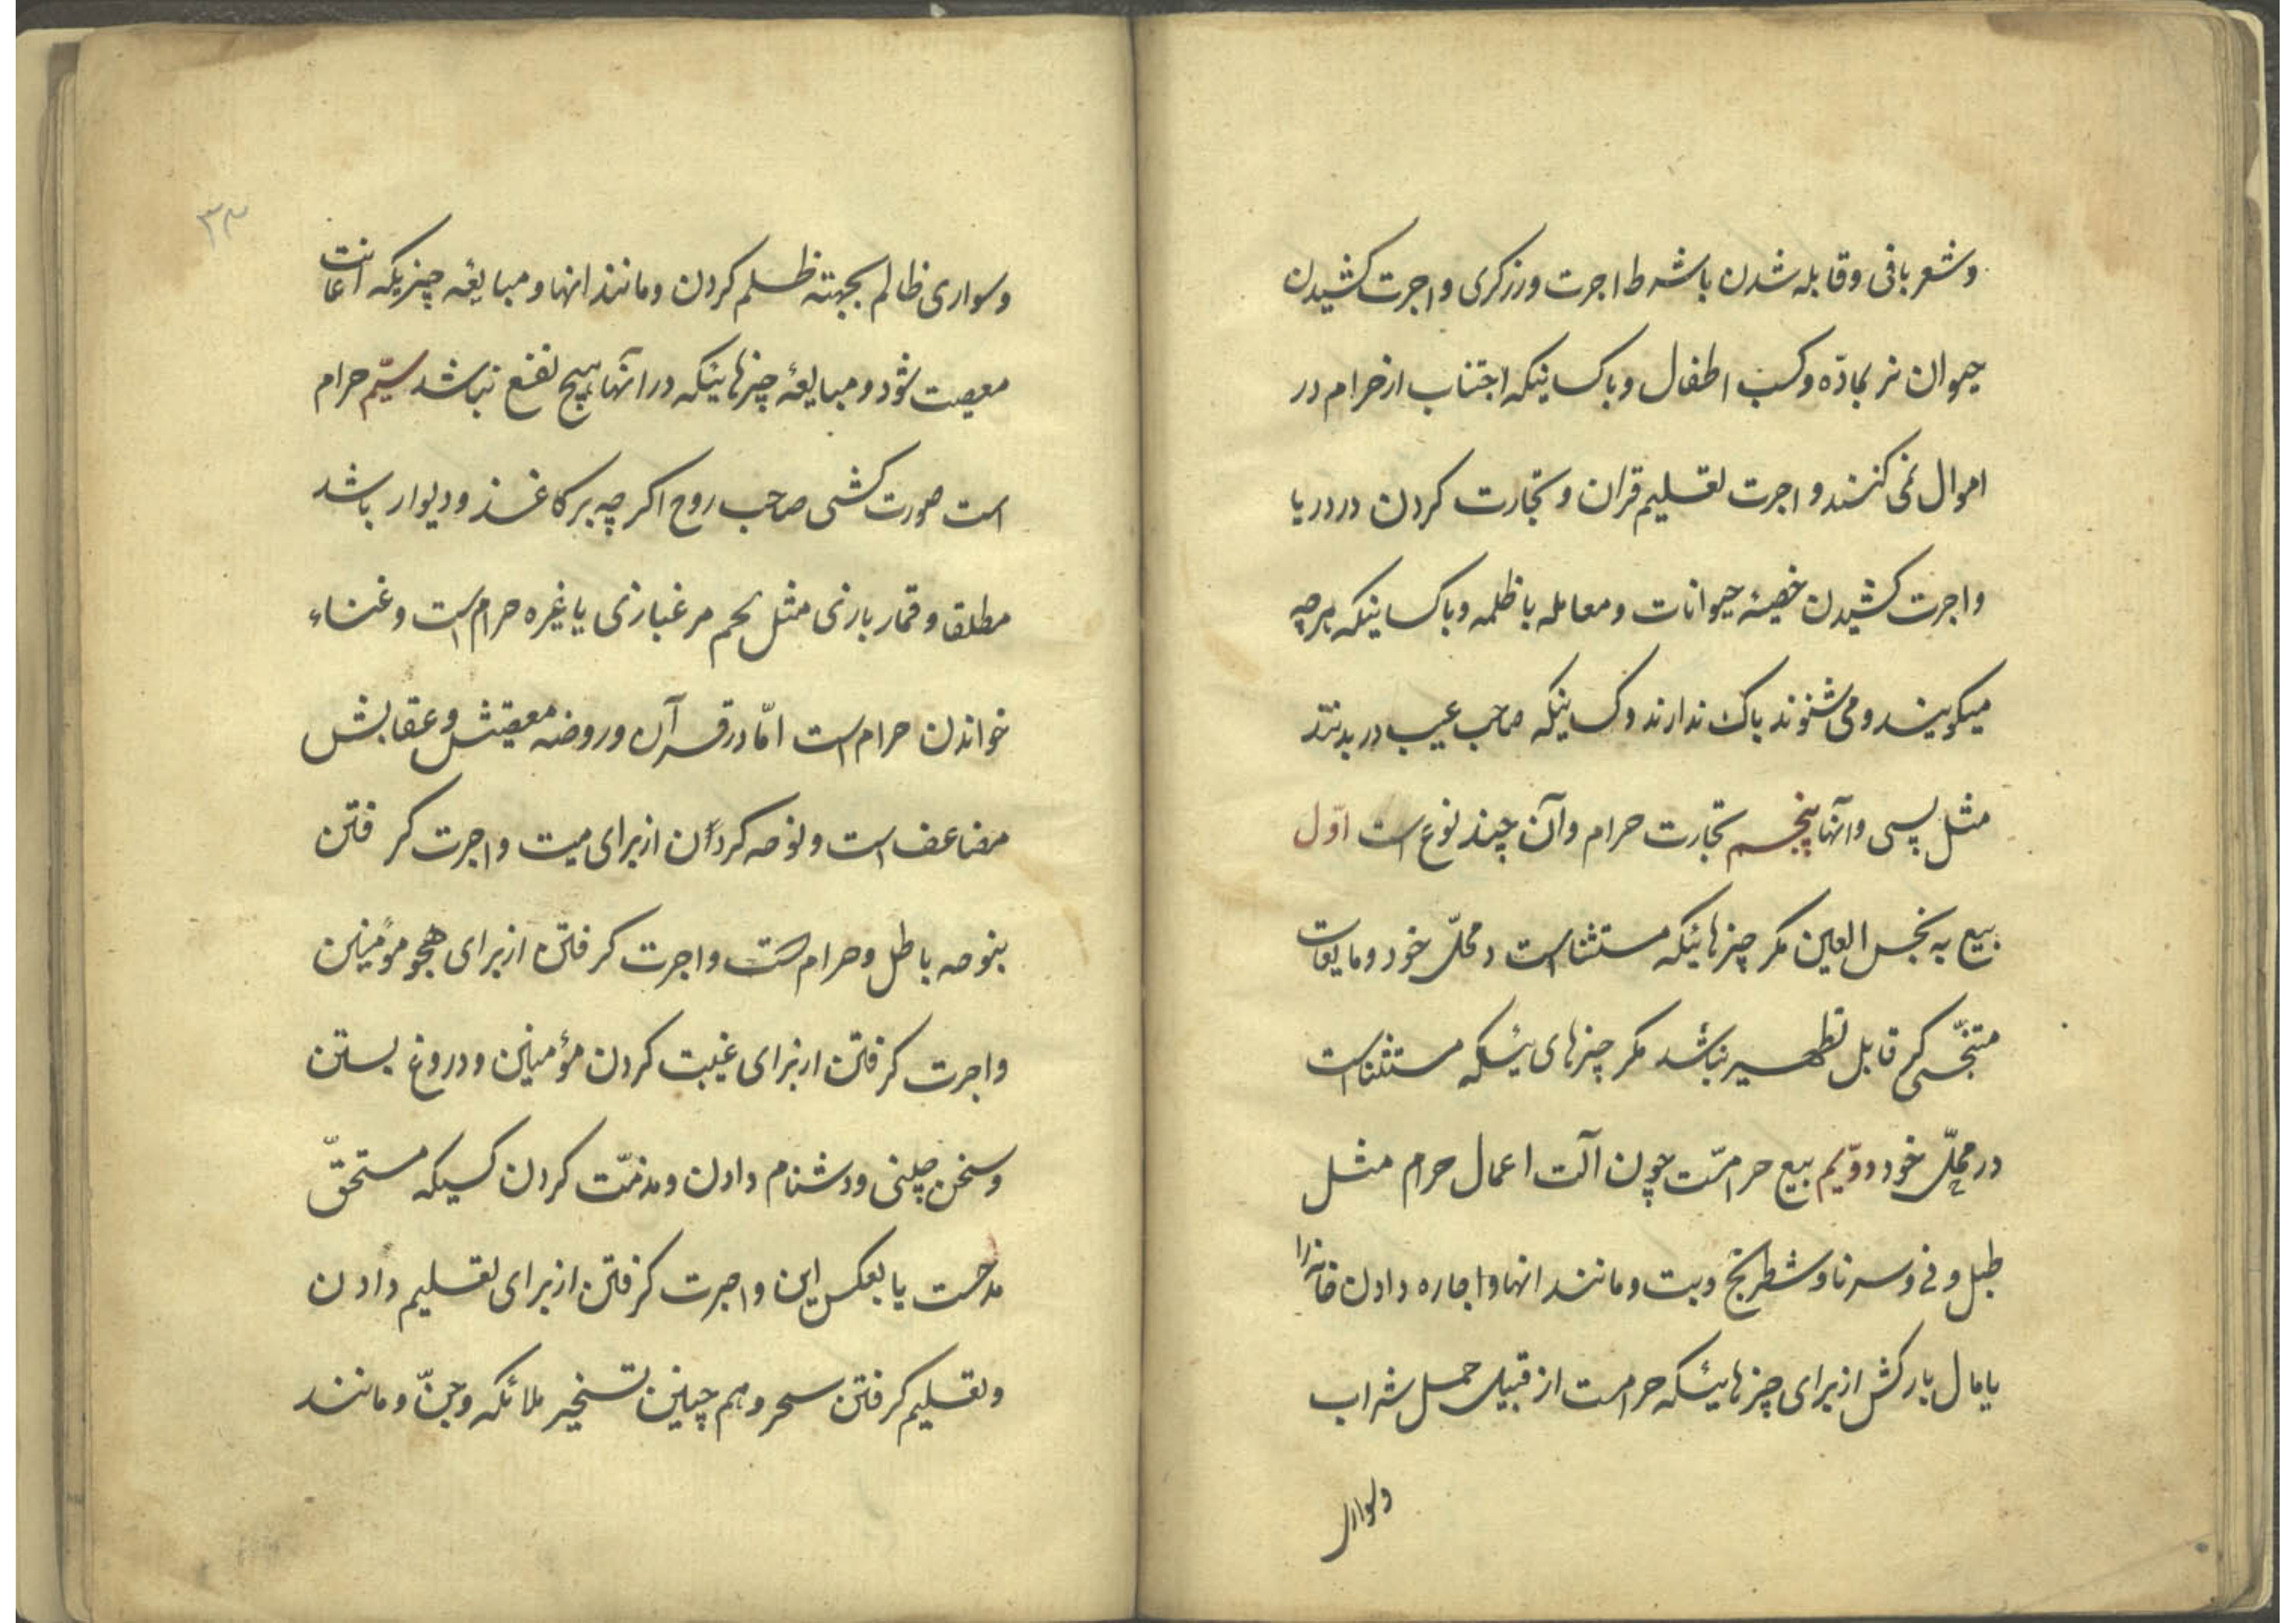 وشعر بافی وقابله شدن باشرط اجرت وزرکری واجرت کشیدن
حیوان نر بمادّه وکسب اطفال وباکسانیکه اجتناب ازحرام در
اموال نمی کنند و اجرت تعلیم قران وتجارت کردن در دریا
واجرت کشیدن خصیهٔ حیوانات ومعامله با ظلمه وباکسانیکه هرچه
میکویند ومی شنوند باک ندارند وکسانیکه صاحب عیب در بدنند
مثل پسی وانها پنجم تجارت حرام وآن چند نوع است اوّل
بیع به نجس العین مکر چیزهائیکه مستثنا است در محلّ خود ومایعات
متنجّس که قابل تطهیر نباشد مکر چیزهای ئیکه مستثنا است
در محلّ خود دوّیم بیع حرامست چون آلت اعمال حرام مثل
طبل ونی وسرنا وشطرنج وبت ومانند انها واجاره دادن خانه را
یا مال بارکش ازبرای چیزهائیکه حرامست از قبیل حمل شراب
وسوار
۳۴
وسواری ظالم بجهته ظلم کردن ومانند انها ومبایعه چیزیکه اعانت
معصیت شود ومبایعهٔ چیزهائیکه درانها هیچ نفع نباشد سیّم حرام
است صورت کشی صاحب روح اکرچه بر کاغذ ودیوار باشد
مطلقا وقمار بازی مثل بحم مرغبازی یا غیره حرام است وغناء
خواندن حرام است امّا درقرآن وروضه معصیتش وعقابش
مضاعف است ونوحه کردن ازبرای میت واجرت کرفتن
بنوحه باطل وحرام است واجرت کرفتن ازبرای هجو مؤمنین
واجرت کرفتن ازبرای غیبت کردن مؤمنین ودروغ بستن
وسخن چینی ودشنام دادن ومذمّت کردن کسیکه مستحقّ
مدحست یا بعکس این واجرت کرفتن ازبرای تعلیم دادن
وتعلیم کرفتن سحر وهم چنین تسخیر ملائکه وجنّ ومانند